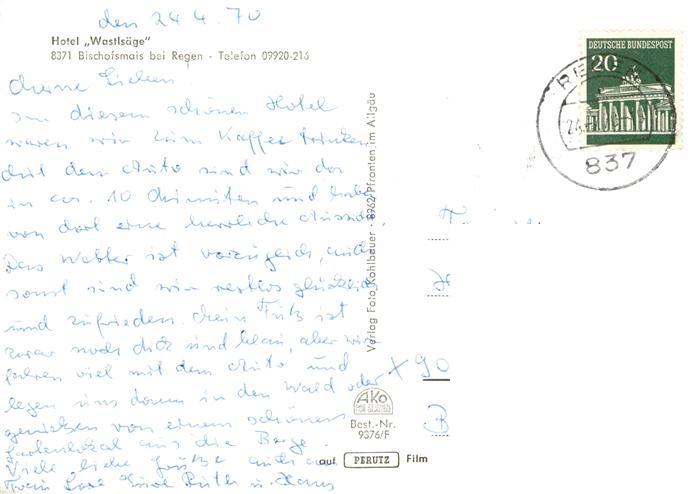 den 24.4.70
Hotel „Wastlsäge"
8371 Bischofsmais bei Regen - Telefon 09920-216
Meine Lieben!
In diesem schönen Hotel
waren wir zum Kaffee trinken
Mit dem Auto sind wir da
in ca. 10 Minuten und haben
von dort eine herrliche Aussicht.
Das Wetter ist vorzüglich, auch
sonst sind wir restlos glücklich
und zufrieden. Mein Fuß ist
zwar noch dick und blau, aber wir
fahren viel mit dem Auto und
legen uns dann in den Wald oder
genießen von einem schönen
Gartenlokal aus die Berge.
Viele liebe Grüße auch an
Frau
Eure Ruth u. Hans
Verlag Foto Kohlbauer · 8962 Pfronten im Allgäu
AKO
Best.-Nr.
9376/F
auf PERUTZ Film
DEUTSCHE BUNDESPOST
20
837
90